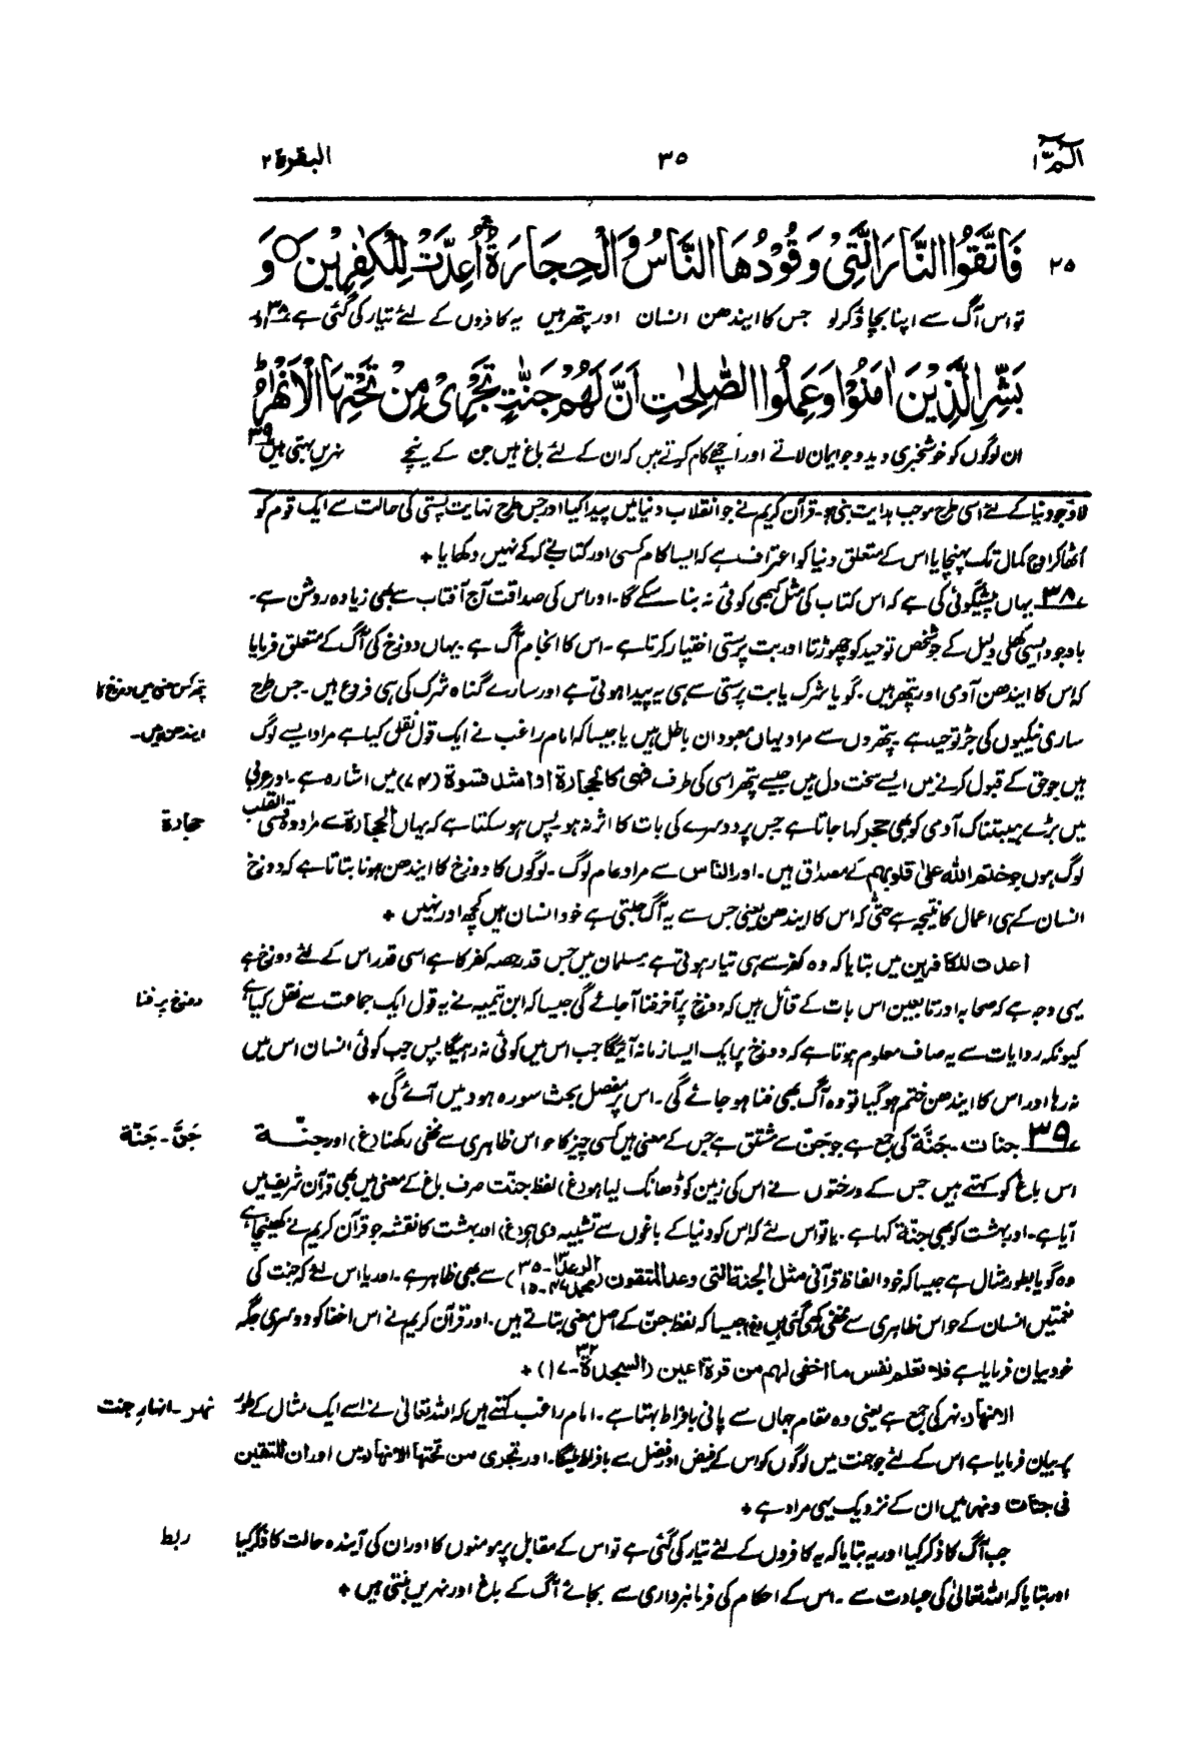 الٓمّٓ ١ ٣٥ البقرة ٢
٢٥ فَاتَّقُوا النَّارَ الَّتِیْ وَقُوْدُهَا النَّاسُ وَالْحِجَارَةُ ۚ اُعِدَّتْ لِلْكٰفِرِیْنَ ○ وَ
تو اس آگ سے اپنا بچاؤ کرلو جس کا ایندھن انسان اور پتھر ہیں یہ کافروں کے لئے تیار کی گئی ہے ٣٨ اور
بَشِّرِ الَّذِیْنَ اٰمَنُوْا وَعَمِلُوا الصّٰلِحٰتِ اَنَّ لَهُمْ جَنّٰتٍ تَجْرِیْ مِنْ تَحْتِهَا الْاَنْهٰرُ ؕ
ان لوگوں کو خوشخبری دیدو جو ایمان لاتے اور اچھے کام کرتے ہیں کہ ان کے لئے باغ ہیں جن کے نیچے نہریں بہتی ہیں ٣٩
لاؤ جو دنیا کے لئے اسی طرح موجب ہدایت بنی ہو۔ قرآن کریم نے جو انقلاب دنیا میں پیدا کیا اور جس طرح نہایت پستی کی حالت سے ایک قوم کو
اٹھا کر اوج کمال تک پہنچایا اس کے متعلق دنیا کو اعتراف ہے کہ ایسا کام کسی اور کتاب نے کر کے نہیں دکھایا +
٣٨ یہاں پیشگوئی کی ہے کہ اس کتاب کی مثل کبھی کوئی نہ بنا سکے گا۔ اور اس کی صداقت آج آفتاب سے بھی زیادہ روشن ہے۔
باوجود ایسی کھلی دلیل کے جو شخص توحید کو چھوڑتا اور بت پرستی اختیار کرتا ہے۔ اس کا انجام آگ ہے۔ یہاں دوزخ کی آگ کے متعلق فرمایا
کہ اس کا ایندھن آدمی اور پتھر ہیں۔ گویا شرک یا بت پرستی سے ہی یہ پیدا ہوتی ہے اور سارے گناہ شرک کی ہی فروع ہیں۔ جس طرح
پتھر کس معنی میں دوزخ کا
ساری نیکیوں کی جڑ توحید ہے پتھروں سے مراد یہاں معبودان باطل ہیں یا جیسا کہ امام راغب نے ایک قول نقل کیا ہے مراد ایسے لوگ
ایندھن ہیں۔
ہیں جو حق کے قبول کرنے میں ایسے سخت دل ہیں جیسے پتھر اسی کی طرف فھی کالحجارة او اشد قسوة (٧٤) میں اشارہ ہے۔ اور عربی
میں بڑے ہیبتناک آدمی کو بھی حجر کہا جاتا ہے جس پر دوسرے کی بات کا اثر نہ ہو۔ پس ہو سکتا ہے کہ یہاں الحجارة سے مراد وہ قسی القلب
حجارة
لوگ ہوں جو ختم اللہ علیٰ قلوبہم کے مصداق ہیں۔ اور الناس سے مراد عام لوگ۔ لوگوں کا دوزخ کا ایندھن ہونا بتاتا ہے کہ دوزخ
انسان کے ہی اعمال کا نتیجہ ہے حتیٰ کہ اس کا ایندھن یعنی جس سے یہ آگ جلتی ہے خود انسان ہیں کچھ اور نہیں +
اعدت للکافرین میں بتایا کہ وہ کفر سے ہی تیار ہوتی ہے مسلمان میں جس قدر حصہ کفر کا ہے اسی قدر اس کے لئے دوزخ ہے
یہی وجہ ہے کہ صحابہ اور تابعین اس بات کے قائل ہیں کہ دوزخ پر آخر فنا آجائے گی جیسا کہ ابن تیمیہ نے یہ قول ایک جماعت سے نقل کیا ہے
دوزخ پر فنا
کیونکہ روایات سے یہ صاف معلوم ہوتا ہے کہ دوزخ پر ایک ایسا زمانہ آئیگا جب اس میں کوئی نہ رہیگا پس جب کوئی انسان اس میں
نہ رہا اور اس کا ایندھن ختم ہو گیا تو وہ آگ بھی فنا ہو جائے گی۔ اس پر مفصل بحث سورہ ہود میں آئے گی +
٣٩ جنات۔ جَنَّة کی جمع ہے جو جَنّ سے مشتق ہے جس کے معنی ہیں کسی چیز کا حواس ظاہری سے مخفی رکھنا (غ) اور جنّة
جَنَّ۔ جَنَّة
اس باغ کو کہتے ہیں جس کے درختوں نے اس کی زمین کو ڈھانک لیا ہو (غ) لفظ جنّت صرف باغ کے معنی میں بھی قرآن شریف میں
آیا ہے۔ اور بہشت کو بھی جنّة کہا ہے۔ یا تو اس لئے کہ اس کو دنیا کے باغوں سے تشبیہ دی ہو (غ) اور بہشت کا نقشہ جو قرآن کریم نے کھینچا ہے
وہ گویا بطور مثال ہے جیسا کہ خود الفاظ قرآنی مثل الجنة التی وعد المتقون (الرعد ١٣-٣٥، محمد ٤٧-١٥) سے بھی ظاہر ہے۔ اور یا اس لئے کہ جنت کی
نعمتیں انسان کے حواس ظاہری سے مخفی رکھی گئی ہیں (غ) جیسا کہ لفظ جنّ کے اصل معنی بتاتے ہیں۔ اور قرآن کریم نے اس اخفا کو دوسری جگہ
خود بیان فرمایا ہے فلا تعلم نفس ما اخفی لہم من قرة اعین (السجدة ٣٢-١٧) +
الانھار۔ نہر کی جمع ہے یعنی وہ مقام جہاں سے پانی بافراط بہتا ہے۔ امام راغب کہتے ہیں کہ اللہ تعالیٰ نے اسے ایک مثال کے طور
نہر۔ انہار جنت
پر بیان فرمایا ہے اس کے لئے جو جنت میں لوگوں کو اس کے فیض اور فضل سے بافراط ملیگا۔ اور تجری من تحتہا الانہار میں اور ان المتقین
فی جنات ونہر میں ان کے نزدیک یہی مراد ہے +
جب آگ کا ذکر کیا اور یہ بتایا کہ یہ کافروں کے لئے تیار کی گئی ہے تو اس کے مقابل پر مومنوں کا اور ان کی آیندہ حالت کا ذکر کیا
ربط
اور بتایا کہ اللہ تعالیٰ کی عبادت سے۔ اس کے احکام کی فرمانبرداری سے بجائے آگ کے باغ اور نہریں بنتی ہیں +